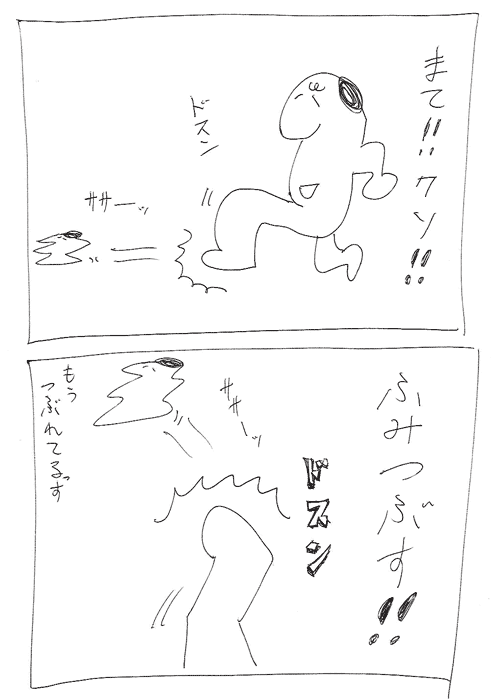 まて!!クソ!!
ドスン
ササーッ
ふみつぶす!!
ドスン
ササーッ
もう
つぶれてるっす